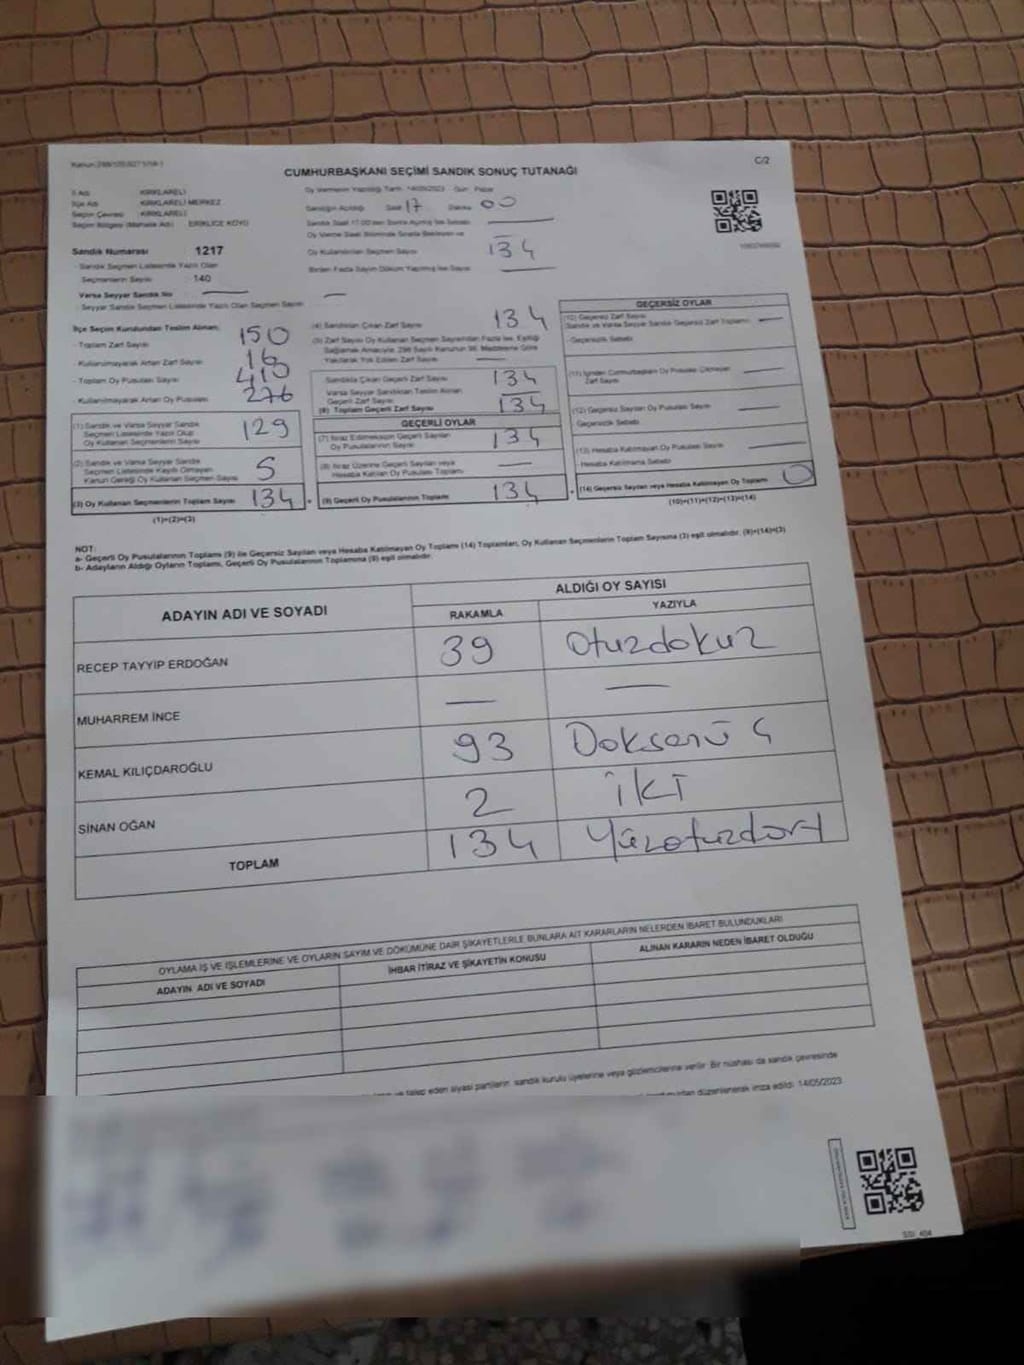 CUMHURBAŞKANI SEÇİMİ SANDIK SONUÇ TUTANAĞI
C/2
İl Adı KIRKLARELİ
İlçe Adı KIRKLARELİ MERKEZ
Seçim Çevresi KIRKLARELİ
Seçim Bölgesi (Mahalle Adı) ERİKLİCE KÖYÜ
Sandık Numarası 1217
- Sandık Seçmen Listesinde Yazılı Olan
Seçmenlerin Sayısı : 140
Varsa Seyyar Sandık No
- Seyyar Sandık Seçmen Listesinde Yazılı Olan Seçmen Sayısı
Oy Vermenin Yapıldığı Tarih: 14/05/2023 Gün: Pazar
Sandığın Açıldığı Saat 17 Dakika 00
Oy Kullanan Seçmen Sayısı 134
İlçe Seçim Kurulundan Teslim Alınan;
- Toplam Zarf Sayısı 150
- Kullanılmayarak Artan Zarf Sayısı 16
- Toplam Oy Pusulası Sayısı 410
- Kullanılmayarak Artan Oy Pusulası 276
(1) Sandık ve Varsa Seyyar Sandık
Seçmen Listesinde Yazılı Olup
Oy Kullanan Seçmenlerin Sayısı 129
(2) Sandık ve Varsa Seyyar Sandık
Seçmen Listesinde Kayıtlı Olmayan
Kanun Gereği Oy Kullanan Seçmen Sayısı 5
(3) Oy Kullanan Seçmenlerin Toplam Sayısı 134
(1)+(2)=(3)
(4) Sandıktan Çıkan Zarf Sayısı 134
(5) Zarf Sayısı Oy Kullanan Seçmen Sayısından Fazla İse, Eşitliği
Sağlamak Amacıyla, 298 Sayılı Kanunun 98. Maddesine Göre
Yakılarak Yok Edilen Zarf Sayısı
Sandıkta Çıkan Geçerli Zarf Sayısı 134
Varsa Seyyar Sandıktan Teslim Alınan
Geçerli Zarf Sayısı
(6) Toplam Geçerli Zarf Sayısı 134
GEÇERLİ OYLAR
(7) İtiraz Edilmeksizin Geçerli Sayılan
Oy Pusulalarının Sayısı 134
(8) İtiraz Üzerine Geçerli Sayılan veya
Hesaba Katılan Oy Pusulası Toplamı
(9) Geçerli Oy Pusulalarının Toplamı 134
GEÇERSİZ OYLAR
(10) Geçersiz Zarf Sayısı
Sandık ve Varsa Seyyar Sandık Geçersiz Zarf Toplamı
Geçersizlik Sebebi
(12) Geçersiz Sayılan Oy Pusulası Sayısı
Geçersizlik Sebebi
(13) Hesaba Katılmayan Oy Pusulası Sayısı
Hesaba Katılmama Sebebi
(14) Geçersiz Sayılan veya Hesaba Katılmayan Oy Toplamı 0
(10)+(11)+(12)+(13)=(14)
NOT:
a- Geçerli Oy Pusulalarının Toplamı (9) ile Geçersiz Sayılan veya Hesaba Katılmayan Oy Toplamı (14) Toplamları, Oy Kullanan Seçmenlerin Toplam Sayısına (3) eşit olmalıdır. (9)+(14)=(3)
b- Adayların Aldığı Oyların Toplamı, Geçerli Oy Pusulalarının Toplamına (9) eşit olmalıdır.
ADAYIN ADI VE SOYADI
ALDIĞI OY SAYISI
RAKAMLA YAZIYLA
RECEP TAYYİP ERDOĞAN 39 Otuzdokuz
MUHARREM İNCE — —
KEMAL KILIÇDAROĞLU 93 Doksanüç
SİNAN OĞAN 2 İki
TOPLAM 134 Yüzotuzdört
OYLAMA İŞ VE İŞLEMLERİNE VE OYLARIN SAYIM VE DÖKÜMÜNE DAİR ŞİKAYETLERLE BUNLARA AİT KARARLARIN NELERDEN İBARET BULUNDUKLARI
ADAYIN ADI VE SOYADI
İHBAR İTİRAZ VE ŞİKAYETİN KONUSU
ALINAN KARARIN NEDEN İBARET OLDUĞU
ve talep eden siyasi partilerin sandık kurulu üyelerine veya gözlemcilerine verilir. Bir nüshası da sandık çevresinde
düzenlenerek imza edildi. 14/05/2023